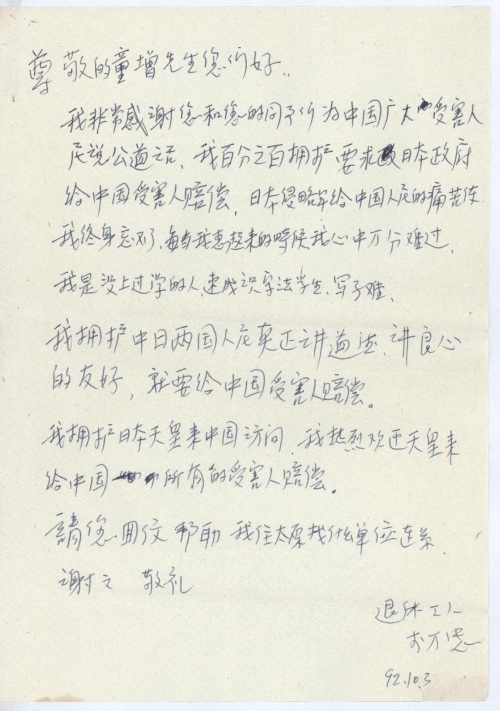 尊敬的童增先生您们好..
我非常感谢您和您的同予们为中国广大受害人
民说公道话，我百分之百拥护要求日本政府
给中国受害人赔偿，日本侵略军给中国人民的痛苦使
我终身忘不了，每当我想起来的时候我心中万分难过，
我是没上过学的人，速成识字法学生，写字难、
我拥护中日两国人民真正讲道德，讲良心
的友好，就要给中国受害人赔偿。
我拥护日本天皇来中国访问，我热烈欢迎天皇来
给中国所有的受害人赔偿。
請您回信帮助我住太原找什么单位连系
谢之 敬礼
退休工人
92.10.3